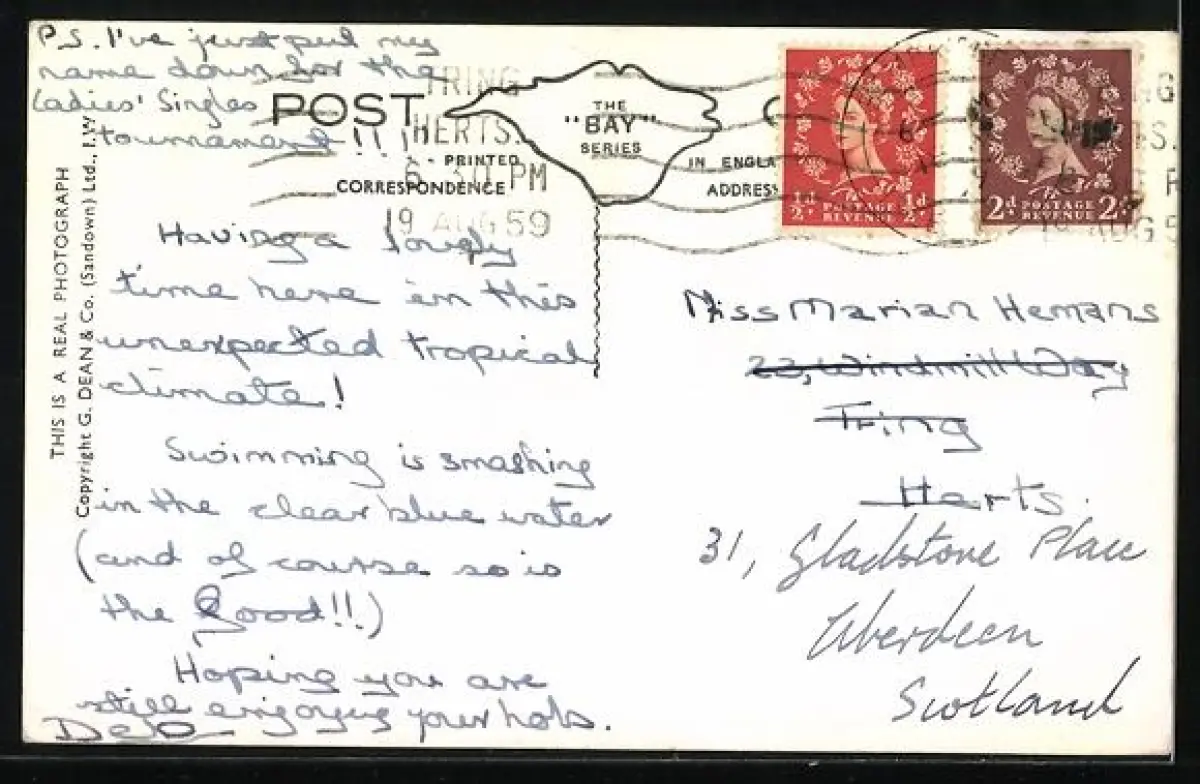 P.S. I've just put my
name down for the
Ladies' Singles
tournament!!!
POST
THE
"BAY"
SERIES
PRINTED
IN ENGLA
CORRESPONDENCE
ADDRESS
TRING
HERTS.
6-30 PM
19 AUG 59
½d POSTAGE ½d
REVENUE
2d POSTAGE 2d
REVENUE
THIS IS A REAL PHOTOGRAPH
Copyright G. DEAN & Co. (Sandown) Ltd., I.W
Having a lovely
time here in this
unexpected tropical
climate!
Swimming is smashing
in the clear blue water
(and of course so is
the food!!)
Hoping you are
still enjoying your hols.
Miss Marian Hemans
23, Windmill Way
Tring
Herts.
31, Gladstone Place
Aberdeen
Scotland